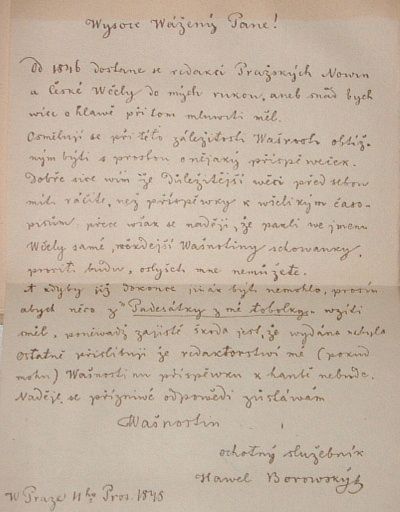 Wysoce Wážený Pane!
Od 1846 dostane se redakcí Pražských Nowin
a České Wčely do mých rukou, aneb snád bych
wíce o hlawě při tom mluwiti měl.
Osměluji se při této záležitosti Wašnosti obtíž-
ným býti s prosbou o nějaký příspěweček.
Dobře sice wím že důležitější wěci před sebou
míti ráčíte, než příspěwky k wšelikým časo-
pisům přece wšak se naději, že pakli we jmenu
Wčely samé, někdejší Wašnostiny schowanky,
prositi budu, oslyšeti mne nemůžete.
A kdyby již dokonce jinak býti nemohlo, prosím
abych něco z "Padesátky z mé tobolky" wzíti
směl, poněwadž zajisté škoda jest, že wydána nebyla
Ostatně přislibuji že redaktorstwí mé (pokud
mohu) Wašnostinu příspěwku k hanbě nebude.
Naděje se přízniwé odpowědi zůstáwám
Wašnostin
ochotný služebník
Hawel Borowský
W Praze 11ho Pros. 1845